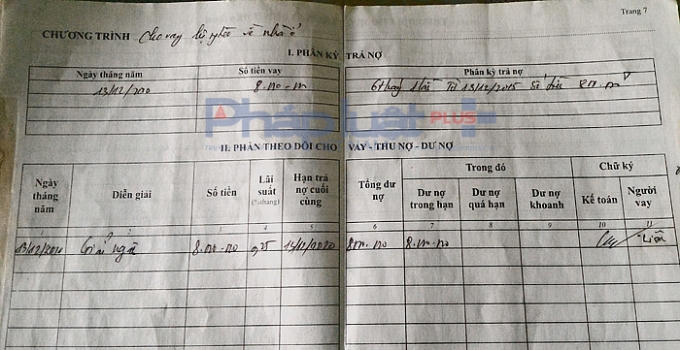 Trang 7
CHƯƠNG TRÌNH Cho vay hộ nghèo về nhà ở
I. PHÂN KỲ TRẢ NỢ
Ngày tháng năm Số tiền vay Phân kỳ trả nợ
13/12/2010 8.000.000 Từ 13/12/2015
Pháp luật PLUS
II. PHẦN THEO DÕI CHO VAY - THU NỢ - DƯ NỢ
Ngày tháng năm Diễn giải Số tiền Lãi suất (%/tháng) Hạn trả nợ cuối cùng Tổng dư nợ Trong đó Chữ ký
Dư nợ trong hạn Dư nợ quá hạn Dư nợ khoanh Kế toán Người vay
3 4 5 6 7 8 9 10 11
13/12/2010 Giải ngân 8.000.000 0,25 13/12/2020 8.000.000 8.000.000